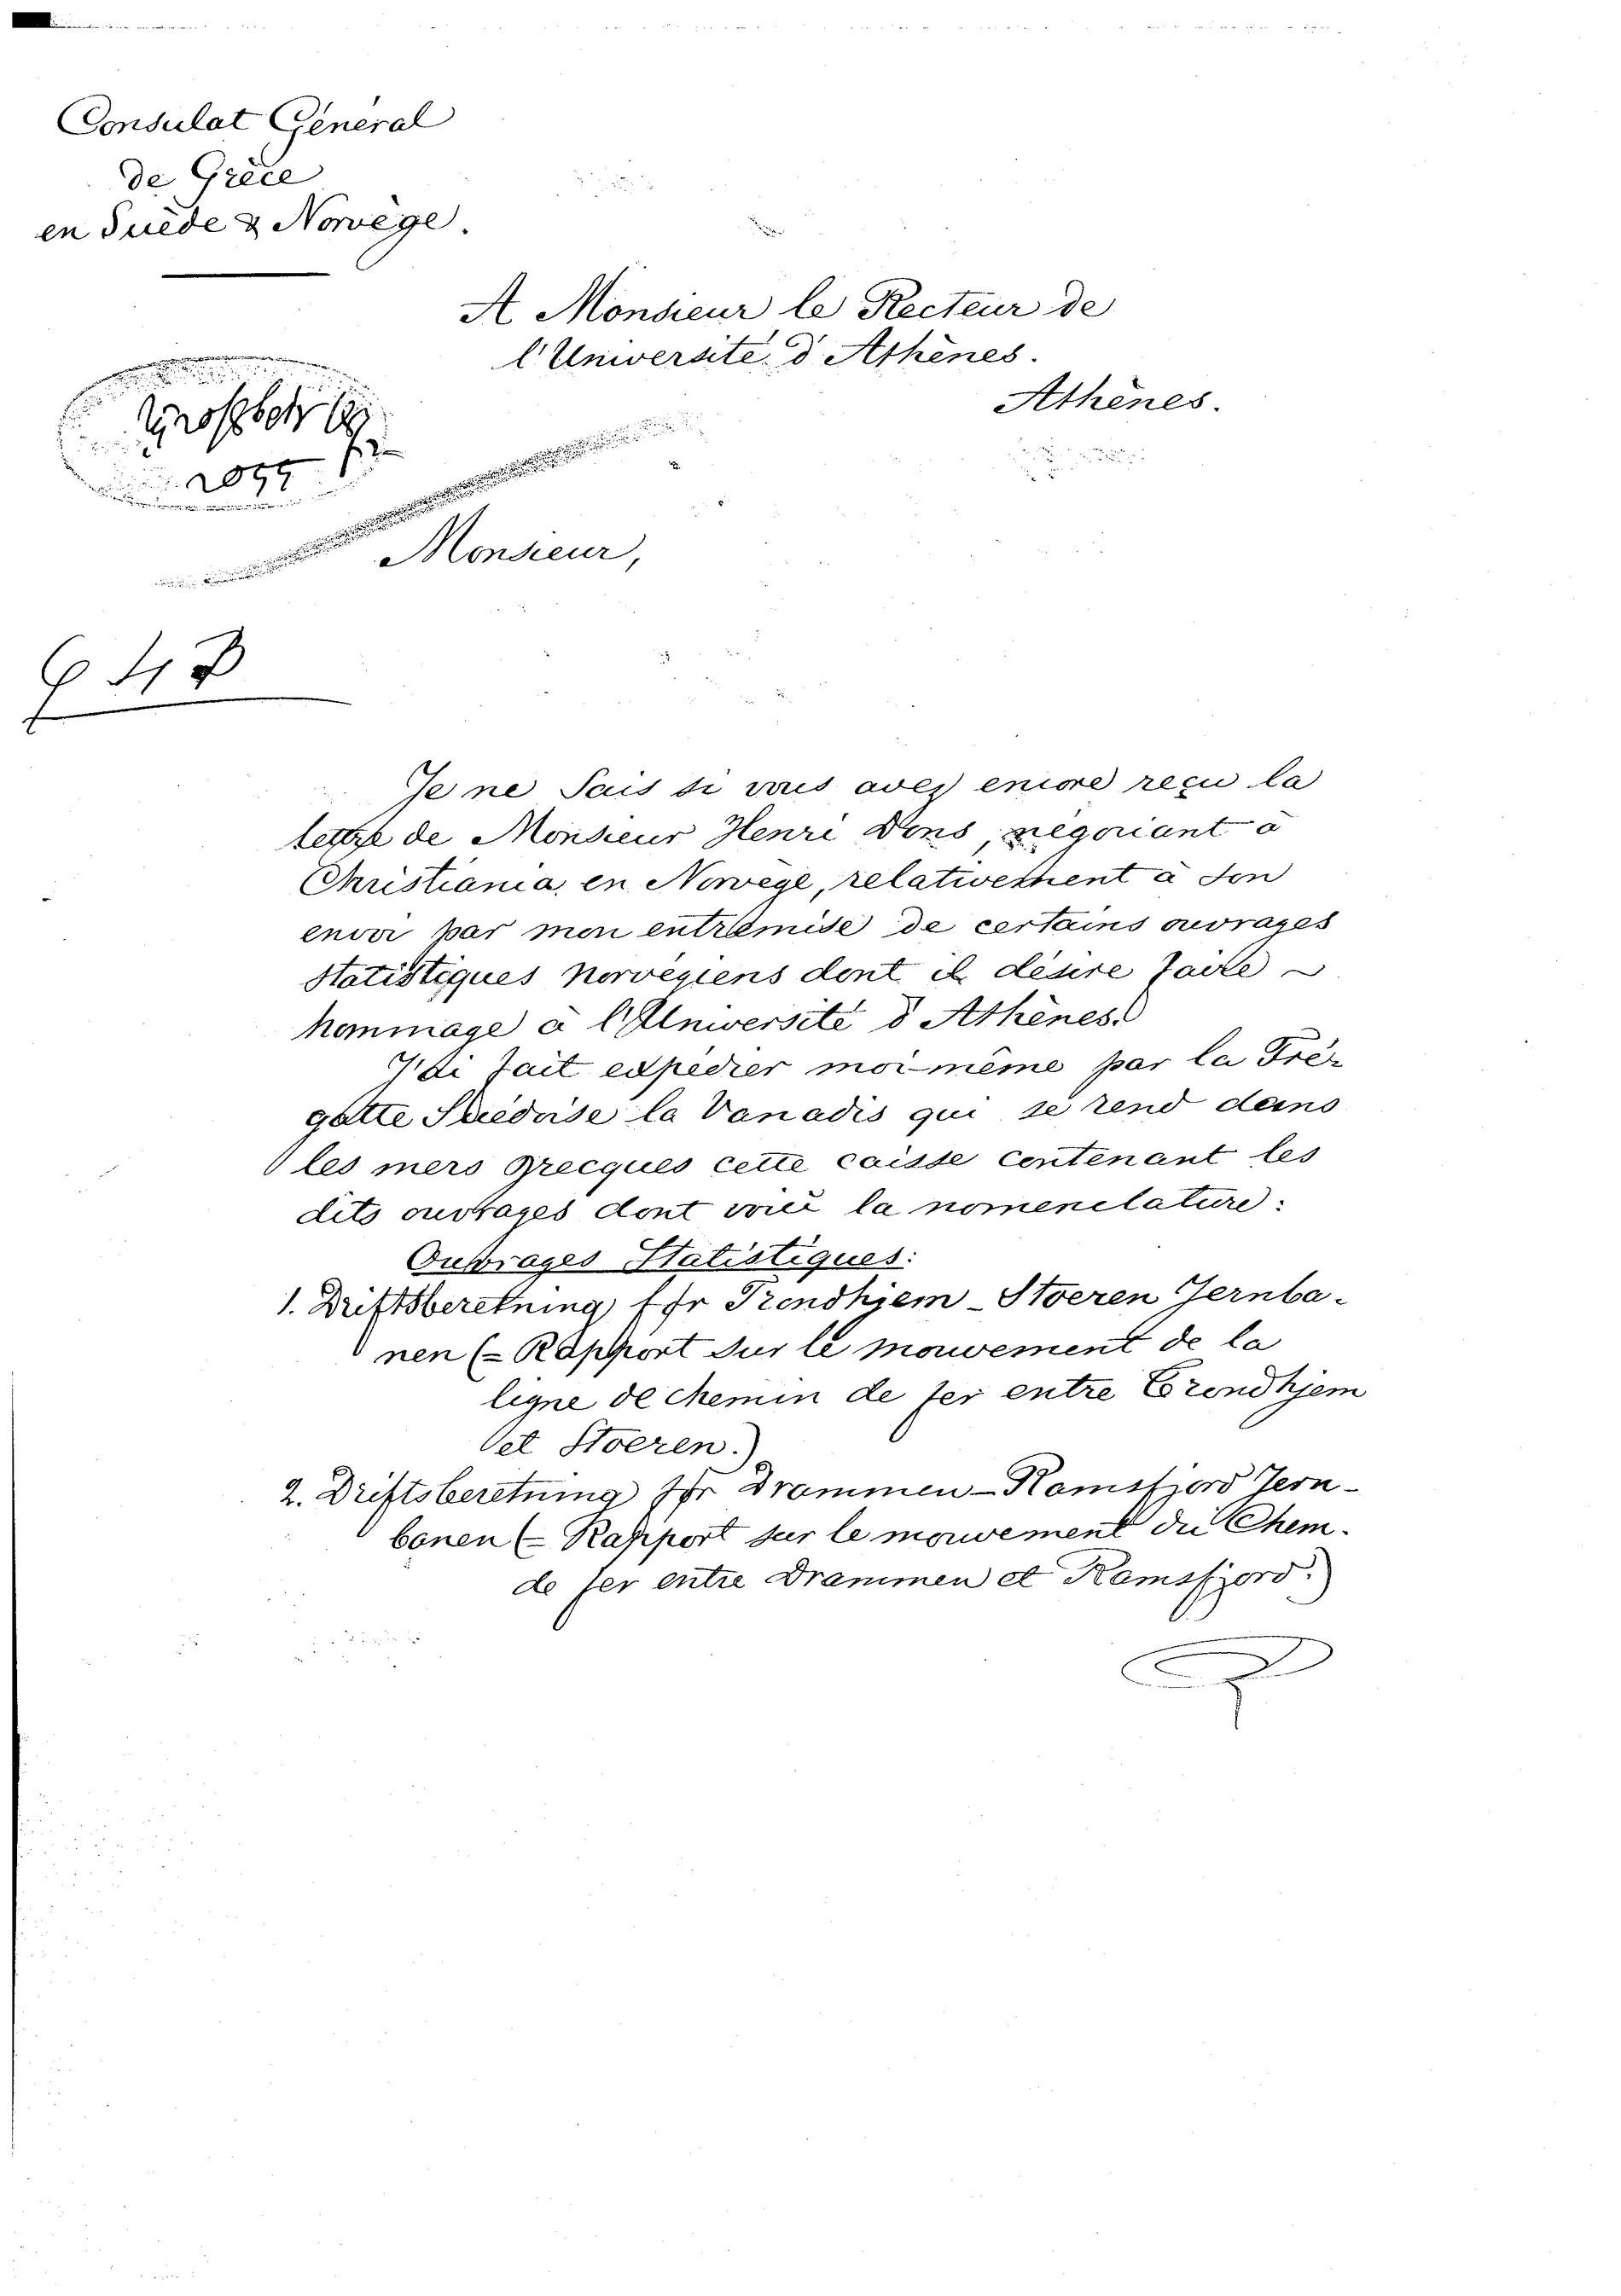 Consulat Général
de Grèce
en Suède & Norvège.
A Monsieur le Recteur de
l'Université d'Athènes.
Athènes.
Monsieur,
Je ne Sais si vous avez encore reçu la
lettre de Monsieur Henri Dons, négociant à
Christiania, en Norvège, relativement à son
envoi par mon entremise de certains ouvrages
Statistiques Norvégiens dont il désire faire
hommage à l'Université d'Athènes.
J'ai fait expédier moi-même par la Fré-
gatte Suédoise la Vanadis qui se rend dans
les mers Grecques cette caisse contenant les
dits ouvrages dont voici la nomenclature:
Ouvrages Statistiques:
1. Driftsberetning for Trondhjem - Stoeren Jernba-
nen (= Rapport sur le mouvement de la
ligne de chemin de fer entre Trondhjem
et Stoeren.)
2. Driftsberetning for Drammen - Ramsfjord Jern-
banen (= Rapport sur le mouvement du Chem.
de fer entre Drammen et Ramsfjord.)